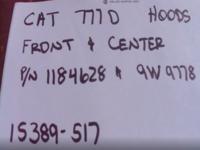 CAT 777D HOODS
FRONT & CENTER
P/N 1184628 & 9W9778
15389-517